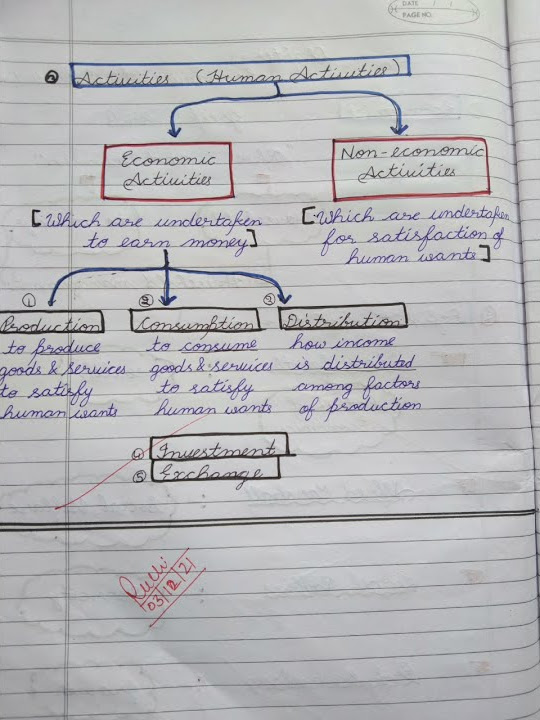 DATE / /
PAGE NO.
Activities (Human Activities)
Economic
Activities
Non-economic
Activities
[Which are undertaken
to earn money]
[Which are undertaken
for satisfaction of
human wants]
① Production
to produce
goods & services
to satisfy
human wants
② Consumption
to consume
goods & services
to satisfy
human wants
③ Distribution
how income
is distributed
among factors
of production
④ Investment
⑤ Exchange
03/12/21